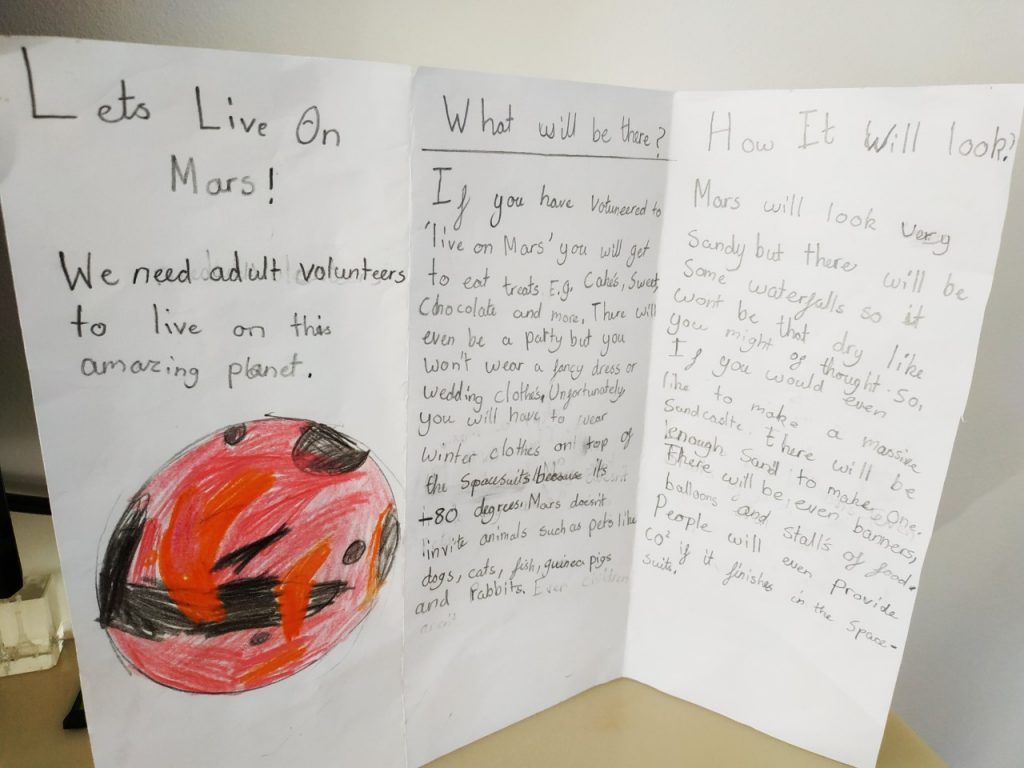 Lets Live On
Mars!
We need adult volunteers
to live on this
amazing planet.
What will be there?
If you have votuneered to
'live on Mars' you will get
to eat treats E.g. Cakes, Sweet,
Chocolate and more, There will
even be a party but you
won't wear a fancy dress or
wedding clothes, Unfortunately,
you will have to wear
winter clothes on top of
the Spacesuits because its
-80 degrees, Mars doesn't
invite animals such as pets like
dogs, cats, fish, guinea pigs
and rabbits. Even children
aren't
How It Will look?
Mars will look very
Sandy but there will be
Some waterfalls so it
wont be that dry like
you might of thought. So,
If you would even
like to make a massive
Sandcastle. there will be
enough Sand to make One.
There will be even banners,
balloons and stalls of food.
People will even provide
CO² if it finishes in the Space-
suits.